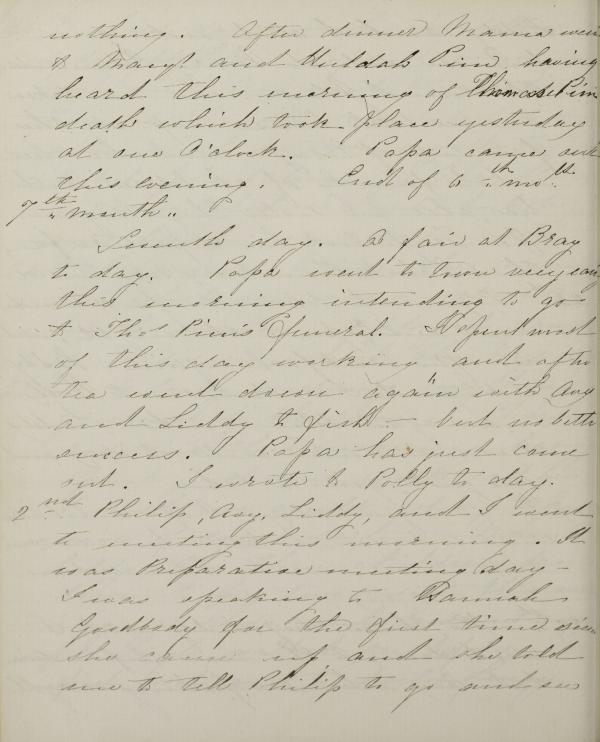 nothing. After dinner Mama went
to Mary and Huldah Pim having
heard this morning of Thomas Pim
death which took place yesterday
at one O'clock. Papa came out
this evening. End of 6th mo.
7th month.
Seventh day. A fair at Bray
to day. Papa went to town very early
this morning intending to go
to Thos Pim's funeral. I spent most
of this day working and after
tea went down again with Avy
and Liddy to fish - but no better
success. Papa has just come
out. I wrote to Polly to day.
2nd Philip, Avy, Liddy, and I went
to meeting this morning. It
was Preparative meeting day -
I was speaking to Hannah
Goodbody for the first time since
she came up, and she told
me to tell Philip to go and see